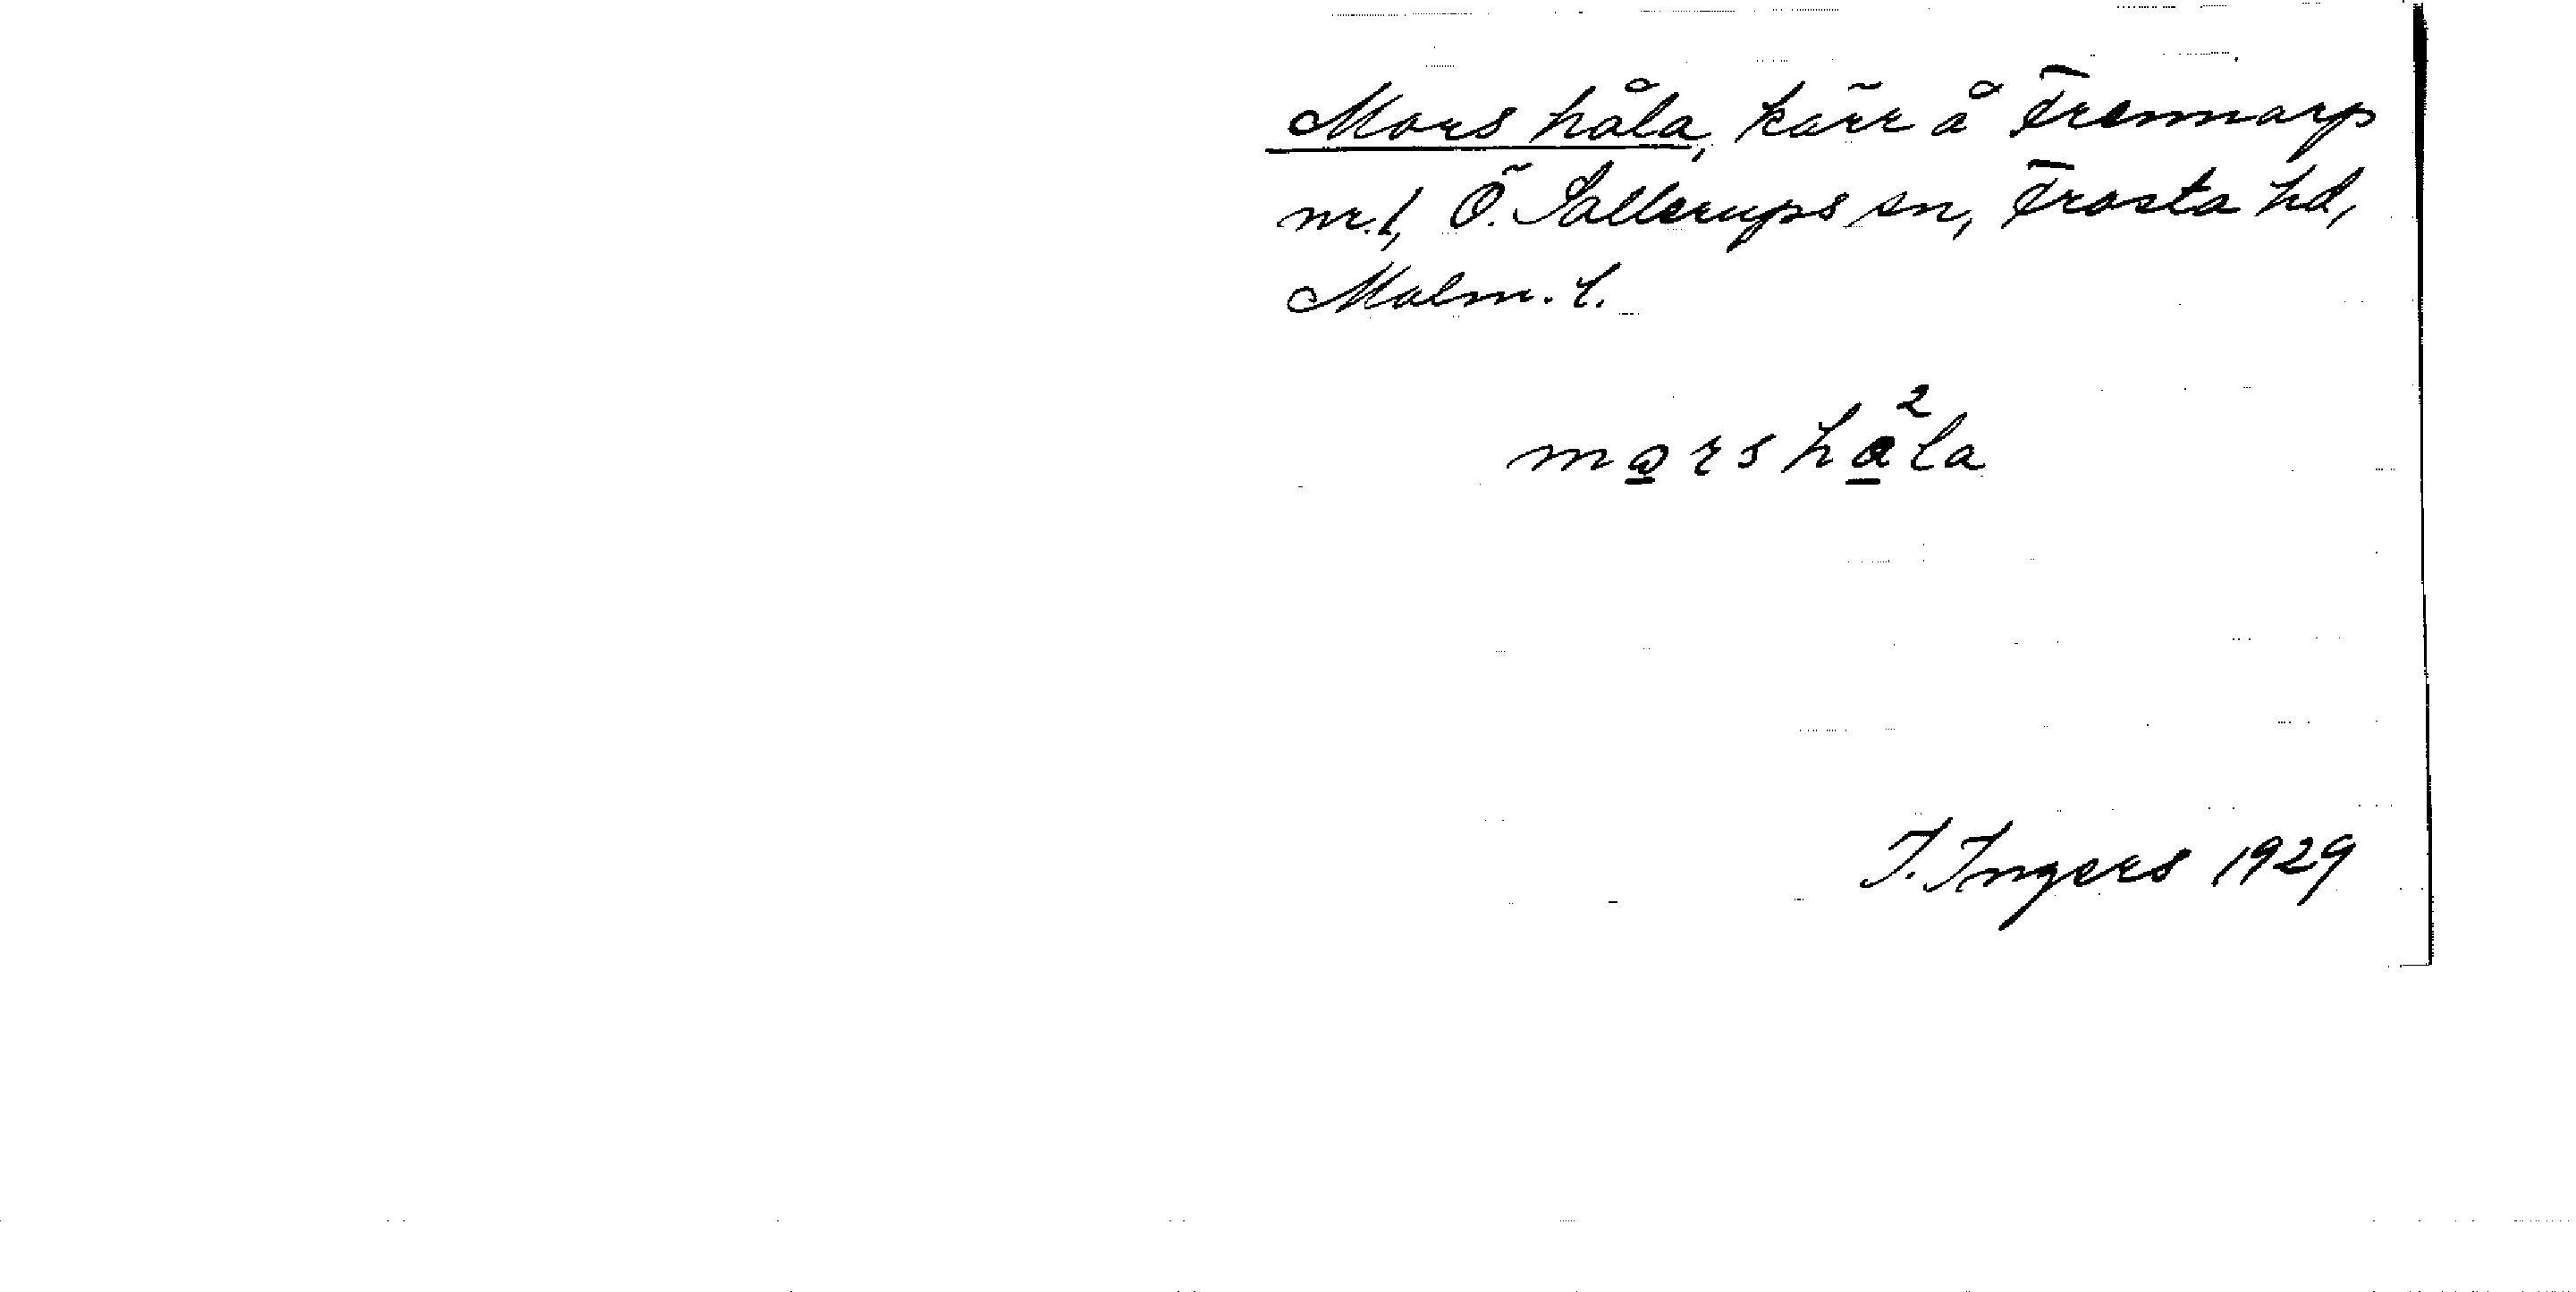 Mors håla, kärr å Trennarp
nr. 1, Ö. Sallerups sn, Frosta hd,
Malm. l.
I. Ingers 1929